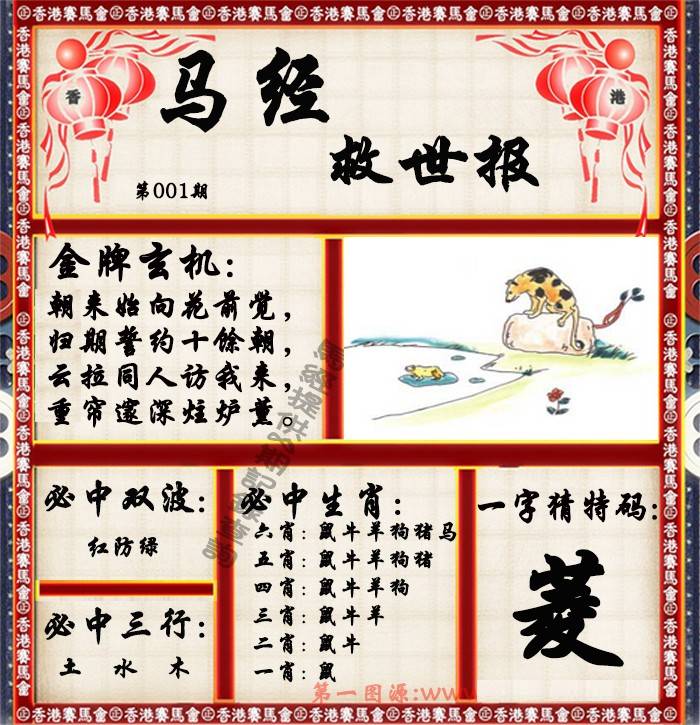 香港賽馬會
马经
救世报
香
港
第001期
金牌玄机：
朝来始向花前觉，
归期誓约十馀朝，
云拉同人访我来，
重帘邃深炷炉薰。
必中双波：
红防绿
必中三行：
土 水 木
必中生肖：
六肖：鼠牛羊狗猪马
五肖：鼠牛羊狗猪
四肖：鼠牛羊狗
三肖：鼠牛羊
二肖：鼠牛
一肖：鼠
一字猜特码：
菱
第一图源:www